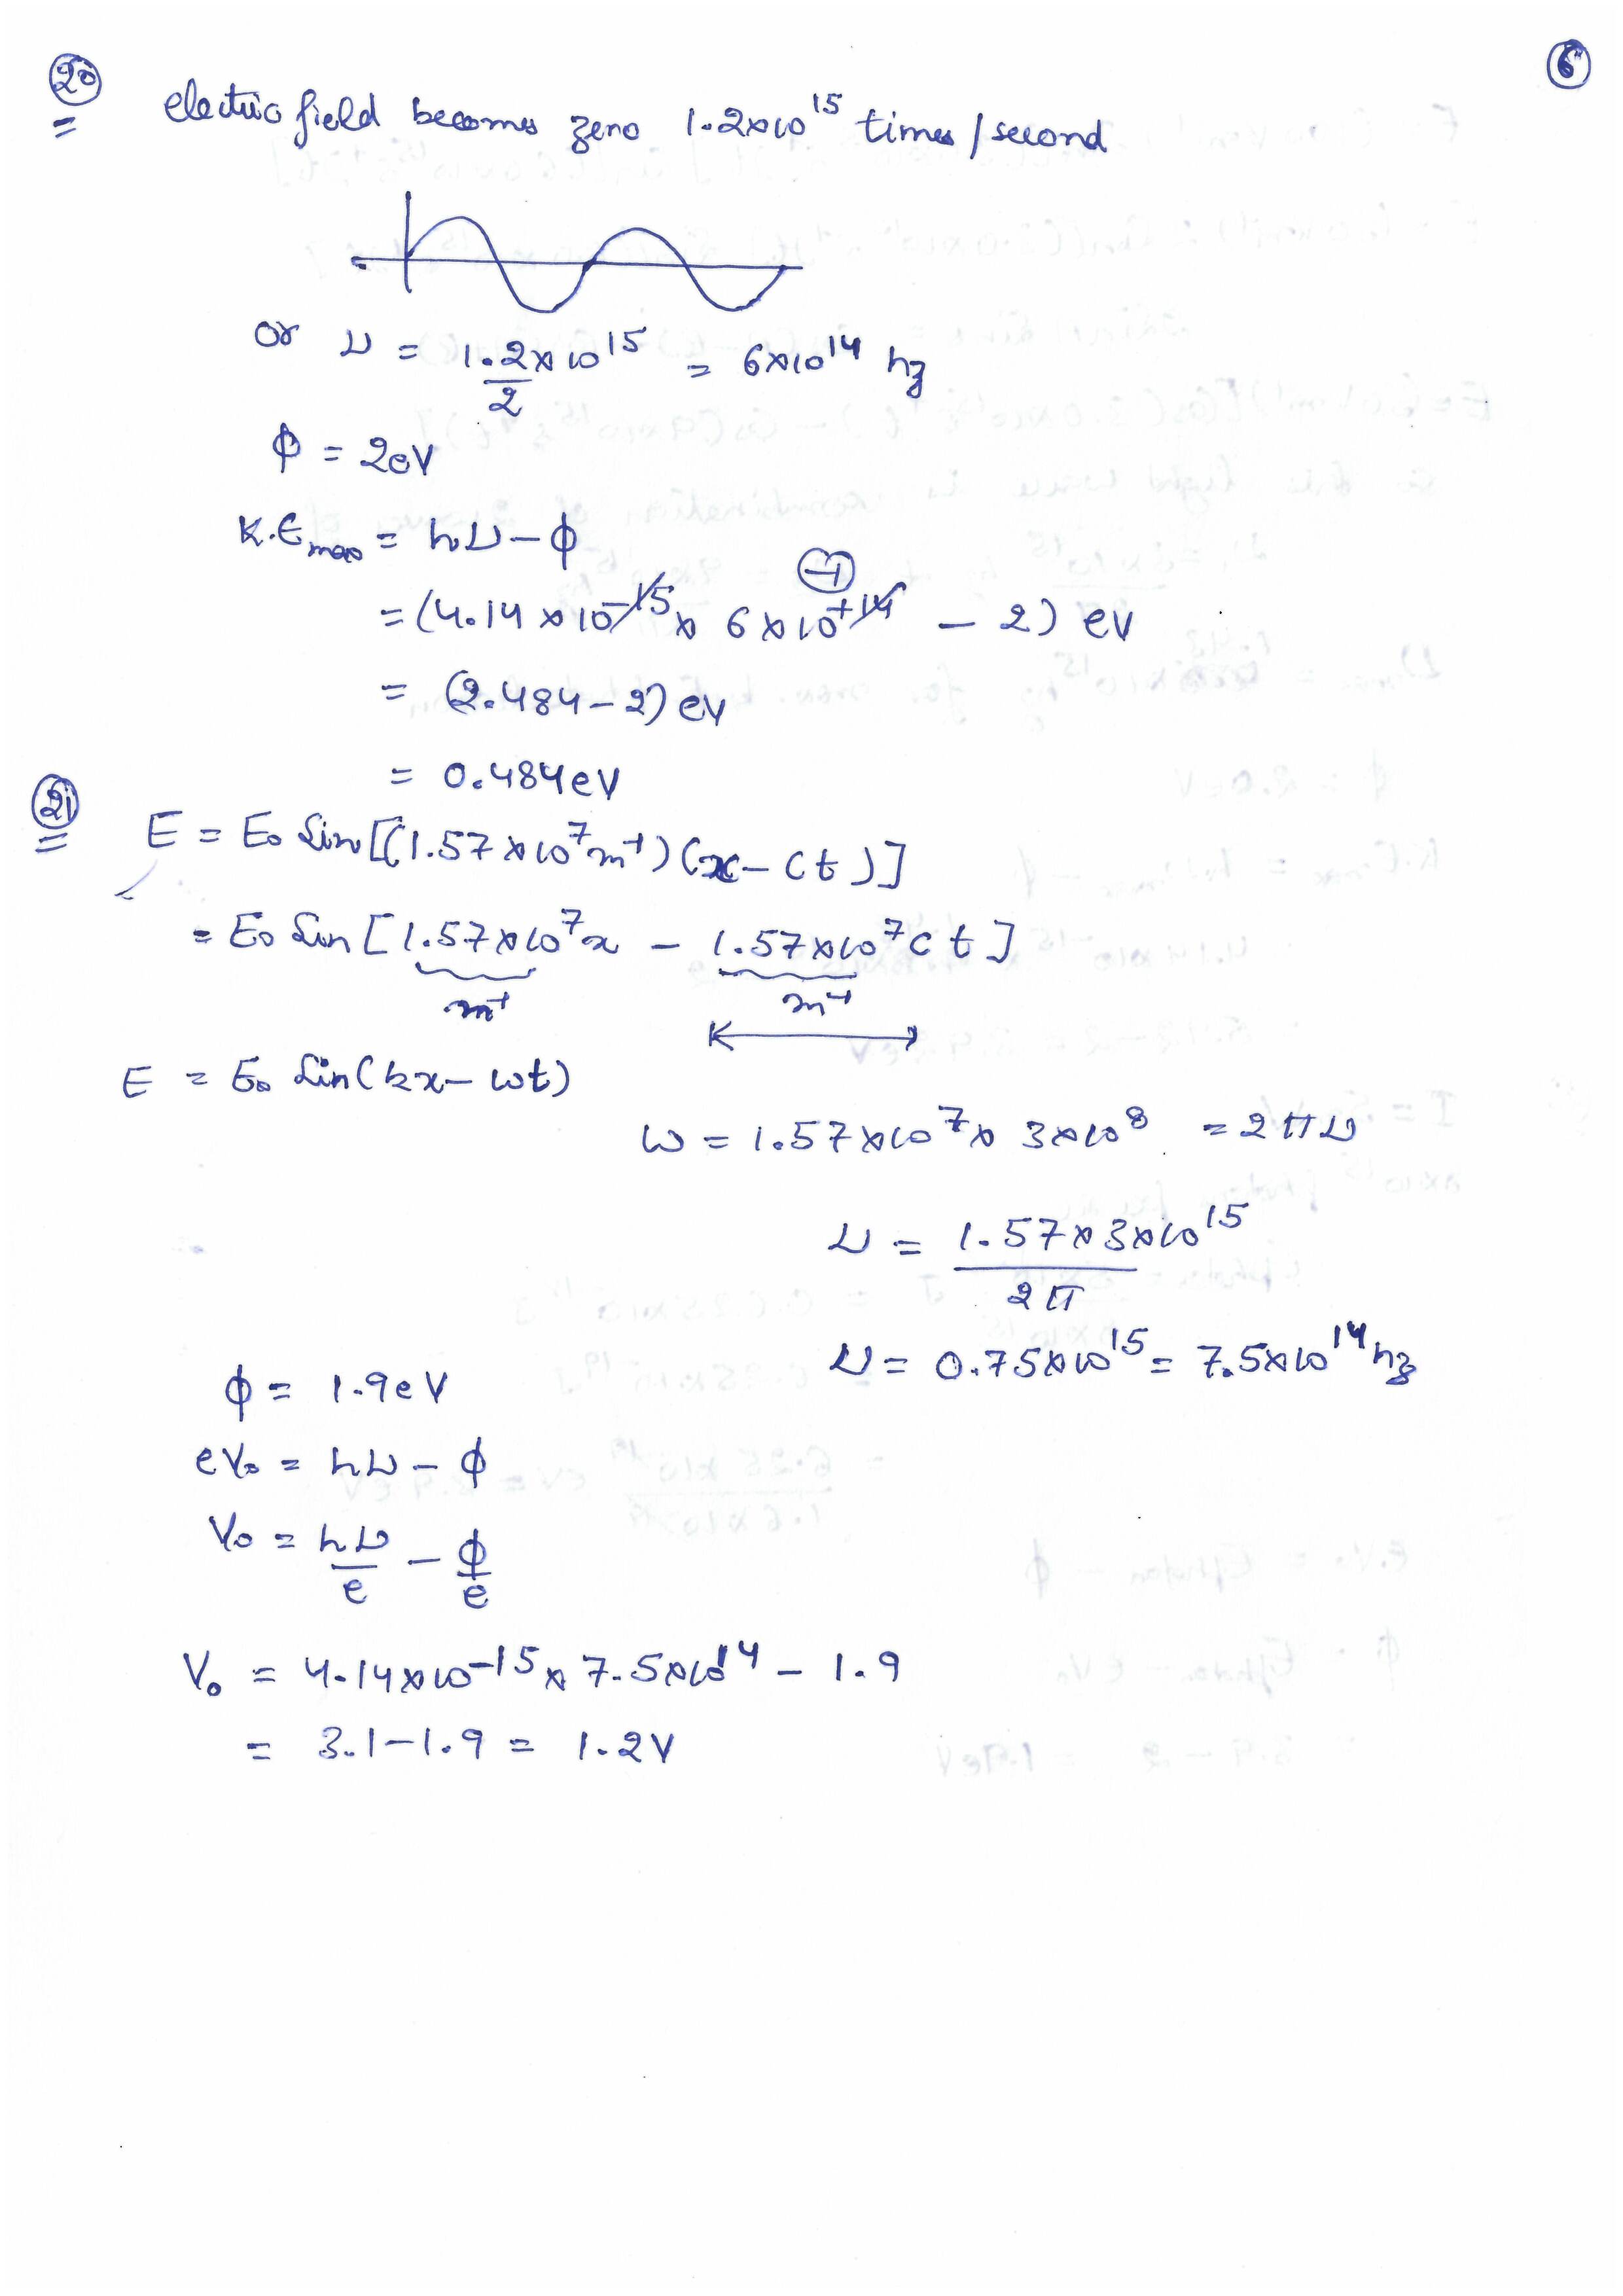 6
20 electric field becomes zero 1.2×10^15 times/second
or ν = 1.2×10^15/2 = 6×10^14 hz
ϕ = 2eV
K.E max = hν − ϕ
= (4.14 × 10^-15 × 6×10^+14 − 2) ev
-1
= (2.484 − 2) ev
= 0.484eV
21 E = E0 Sin[(1.57×10^7 m^-1)(x − ct)]
= E0 Sin [1.57×10^7 x − 1.57×10^7 c t]
m^-1 m^-1
E = E0 Sin(kx − ωt)
ω = 1.57×10^7 × 3×10^8 = 2πν
ν = 1.57×3×10^15/2π
ν = 0.75×10^15 = 7.5×10^14 hz
ϕ = 1.9eV
eV0 = hν − ϕ
V0 = hν/e − ϕ/e
V0 = 4.14×10^-15 × 7.5×10^14 − 1.9
= 3.1−1.9 = 1.2V